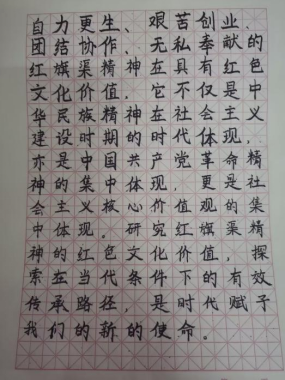 自力更生、艰苦创业、
团结协作、无私奉献的
红旗渠精神在具有红色
文化价值，它不仅是中
华民族精神在社会主义
建设时期的时代体现，
亦是中国共产党革命精
神的集中体现，更是社
会主义核心价值观的集
中体现。研究红旗渠精
神的红色文化价值，探
索在当代条件下的有效
传承路径，是时代赋予
我们的新的使命。